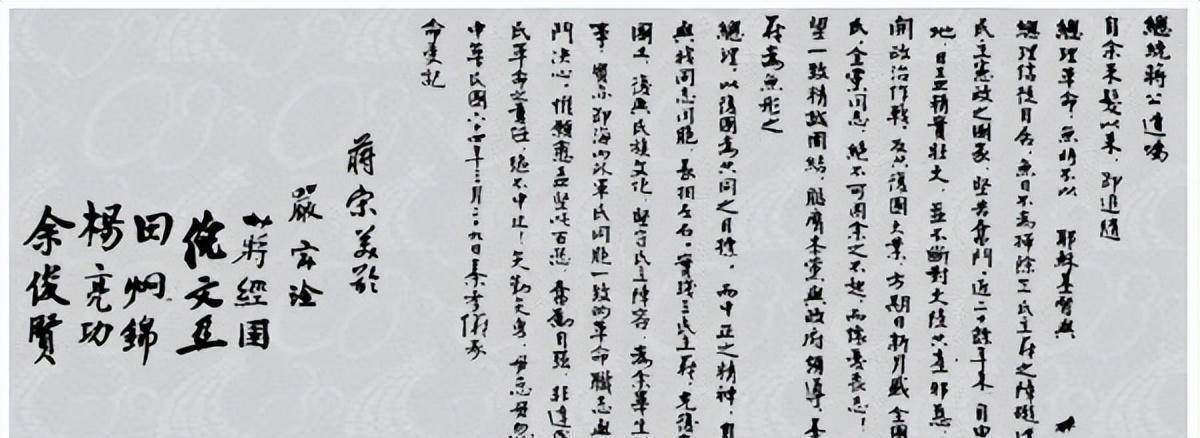 總統蔣公遺囑
自余束髮以來,即追隨
總理革命,無時不以 耶穌基督與
總理信徒自居,無日不為掃除三民主義之障礙,建
民主憲政之國家,堅苦奮鬥,近二十餘年來,自由
地,日益精實壯大,並不斷對大陸共產邪惡,
開政治作戰,反共復國大業,方期日新月盛全國
民全黨同志,絕不可因余之不起,而懷憂喪志!
望一致精誠團結,服膺本黨與政府領導,奉
義為無形之
總理,以復國為共同之目標,而中正之精神,自
與我同志同胞,長相左右,實踐三民主義,光復
國土,復興民族文化,堅守民主陣容,為余畢生
事,實亦即海內外軍民同胞一致的革命職志與
鬥決心,惟願愈益堅此百忍,奮勵自強,非達成
民革命之責任,絕不中止!矢勤矢勇,毋怠毋忽
中華民國六十四年三月二十九日秦孝儀承
命受記
蔣宋美齡
嚴家淦
蔣經國
倪文亞
田炯錦
楊亮功
余俊賢